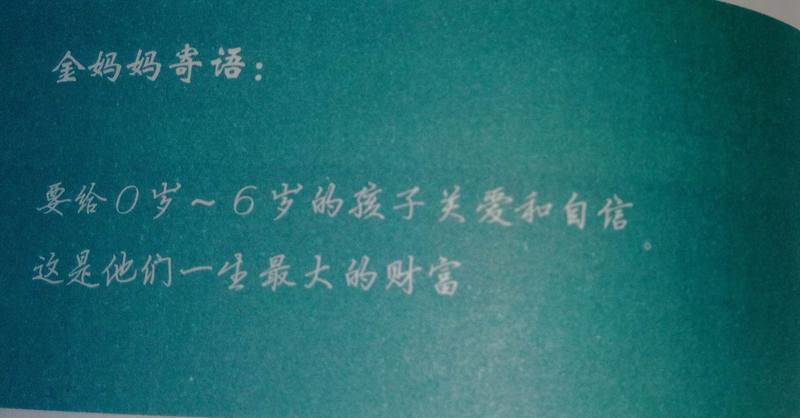 金妈妈寄语：
要给0岁～6岁的孩子关爱和自信
这是他们一生最大的财富。